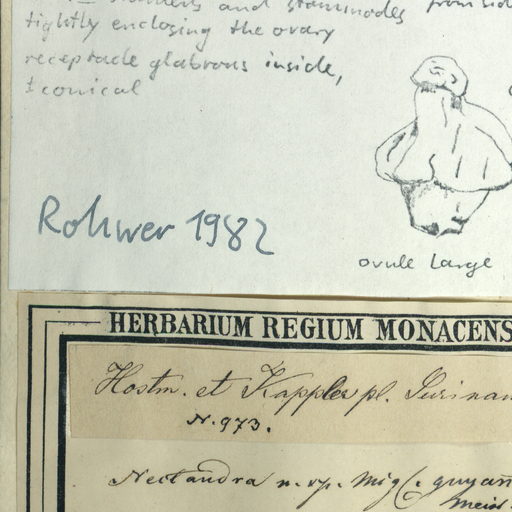 and staminodes from sid
tightly enclosing the ovary
receptacle glabrous inside,
± conical
Rohwer 1982
ovule large
HERBARIUM REGIUM MONACENS
Hostm. et Kappler pl. Surinam
N. 973.
Nectandra n. sp. Miq. guyan
Meisn